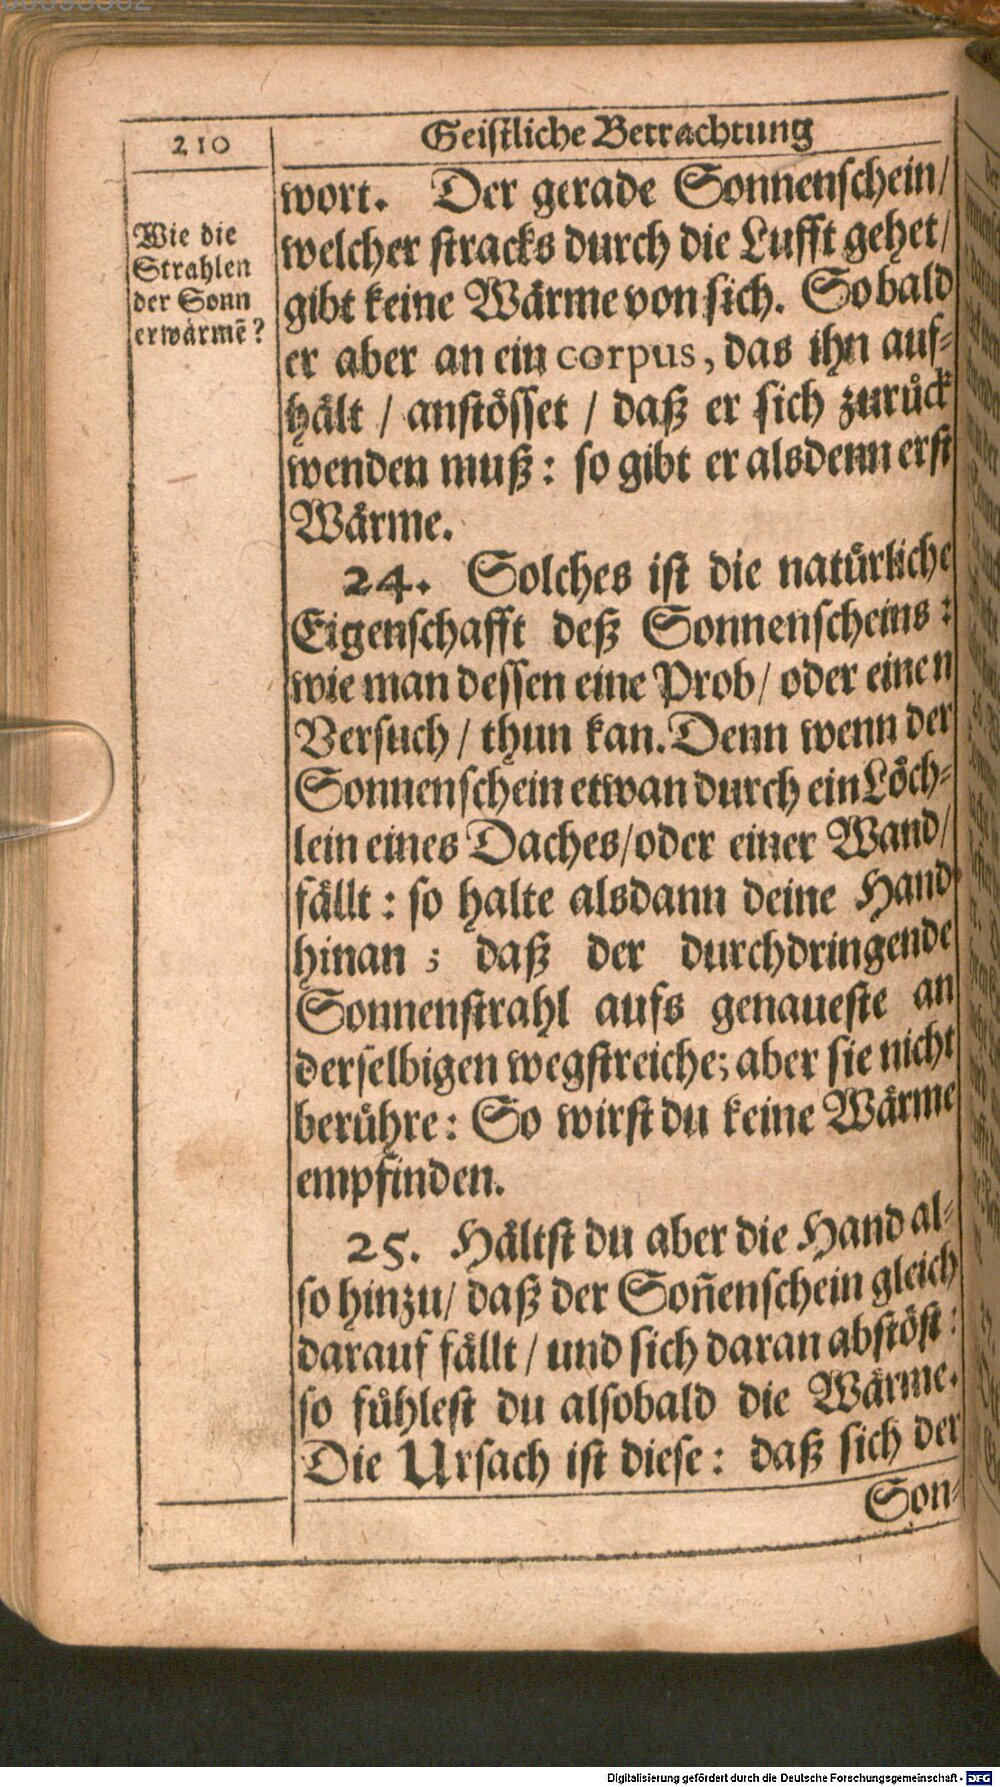 210
Geistliche Betrachtung
Wie die
Strahlen
der Sonn
erwärmẽ?
wort. Der gerade Sonnenschein/
welcher stracks durch die Lufft gehet/
gibt keine Wärme von sich. So bald
er aber an ein corpus, das ihn auf-
hält / anstösset / daß er sich zurück
wenden muß: so gibt er alsdenn erst
Wärme.
24. Solches ist die natürliche
Eigenschafft deß Sonnenscheins:
wie man dessen eine Prob/ oder einen
Versuch / thun kan. Denn wenn der
Sonnenschein etwan durch ein Löch-
lein eines Daches/oder einer Wand/
fällt: so halte alsdann deine Hand
hinan; daß der durchdringende
Sonnenstrahl aufs genaueste an
derselbigen wegstreiche; aber sie nicht
berühre: So wirst du keine Wärme
empfinden.
25. Hältst du aber die Hand al-
so hinzu/ daß der Soñenschein gleich
darauf fällt / und sich daran abstöst:
so fühlest du alsobald die Wärme.
Die Ursach ist diese: daß sich der
Son-
Digitalisierung gefördert durch die Deutsche Forschungsgemeinschaft - DFG